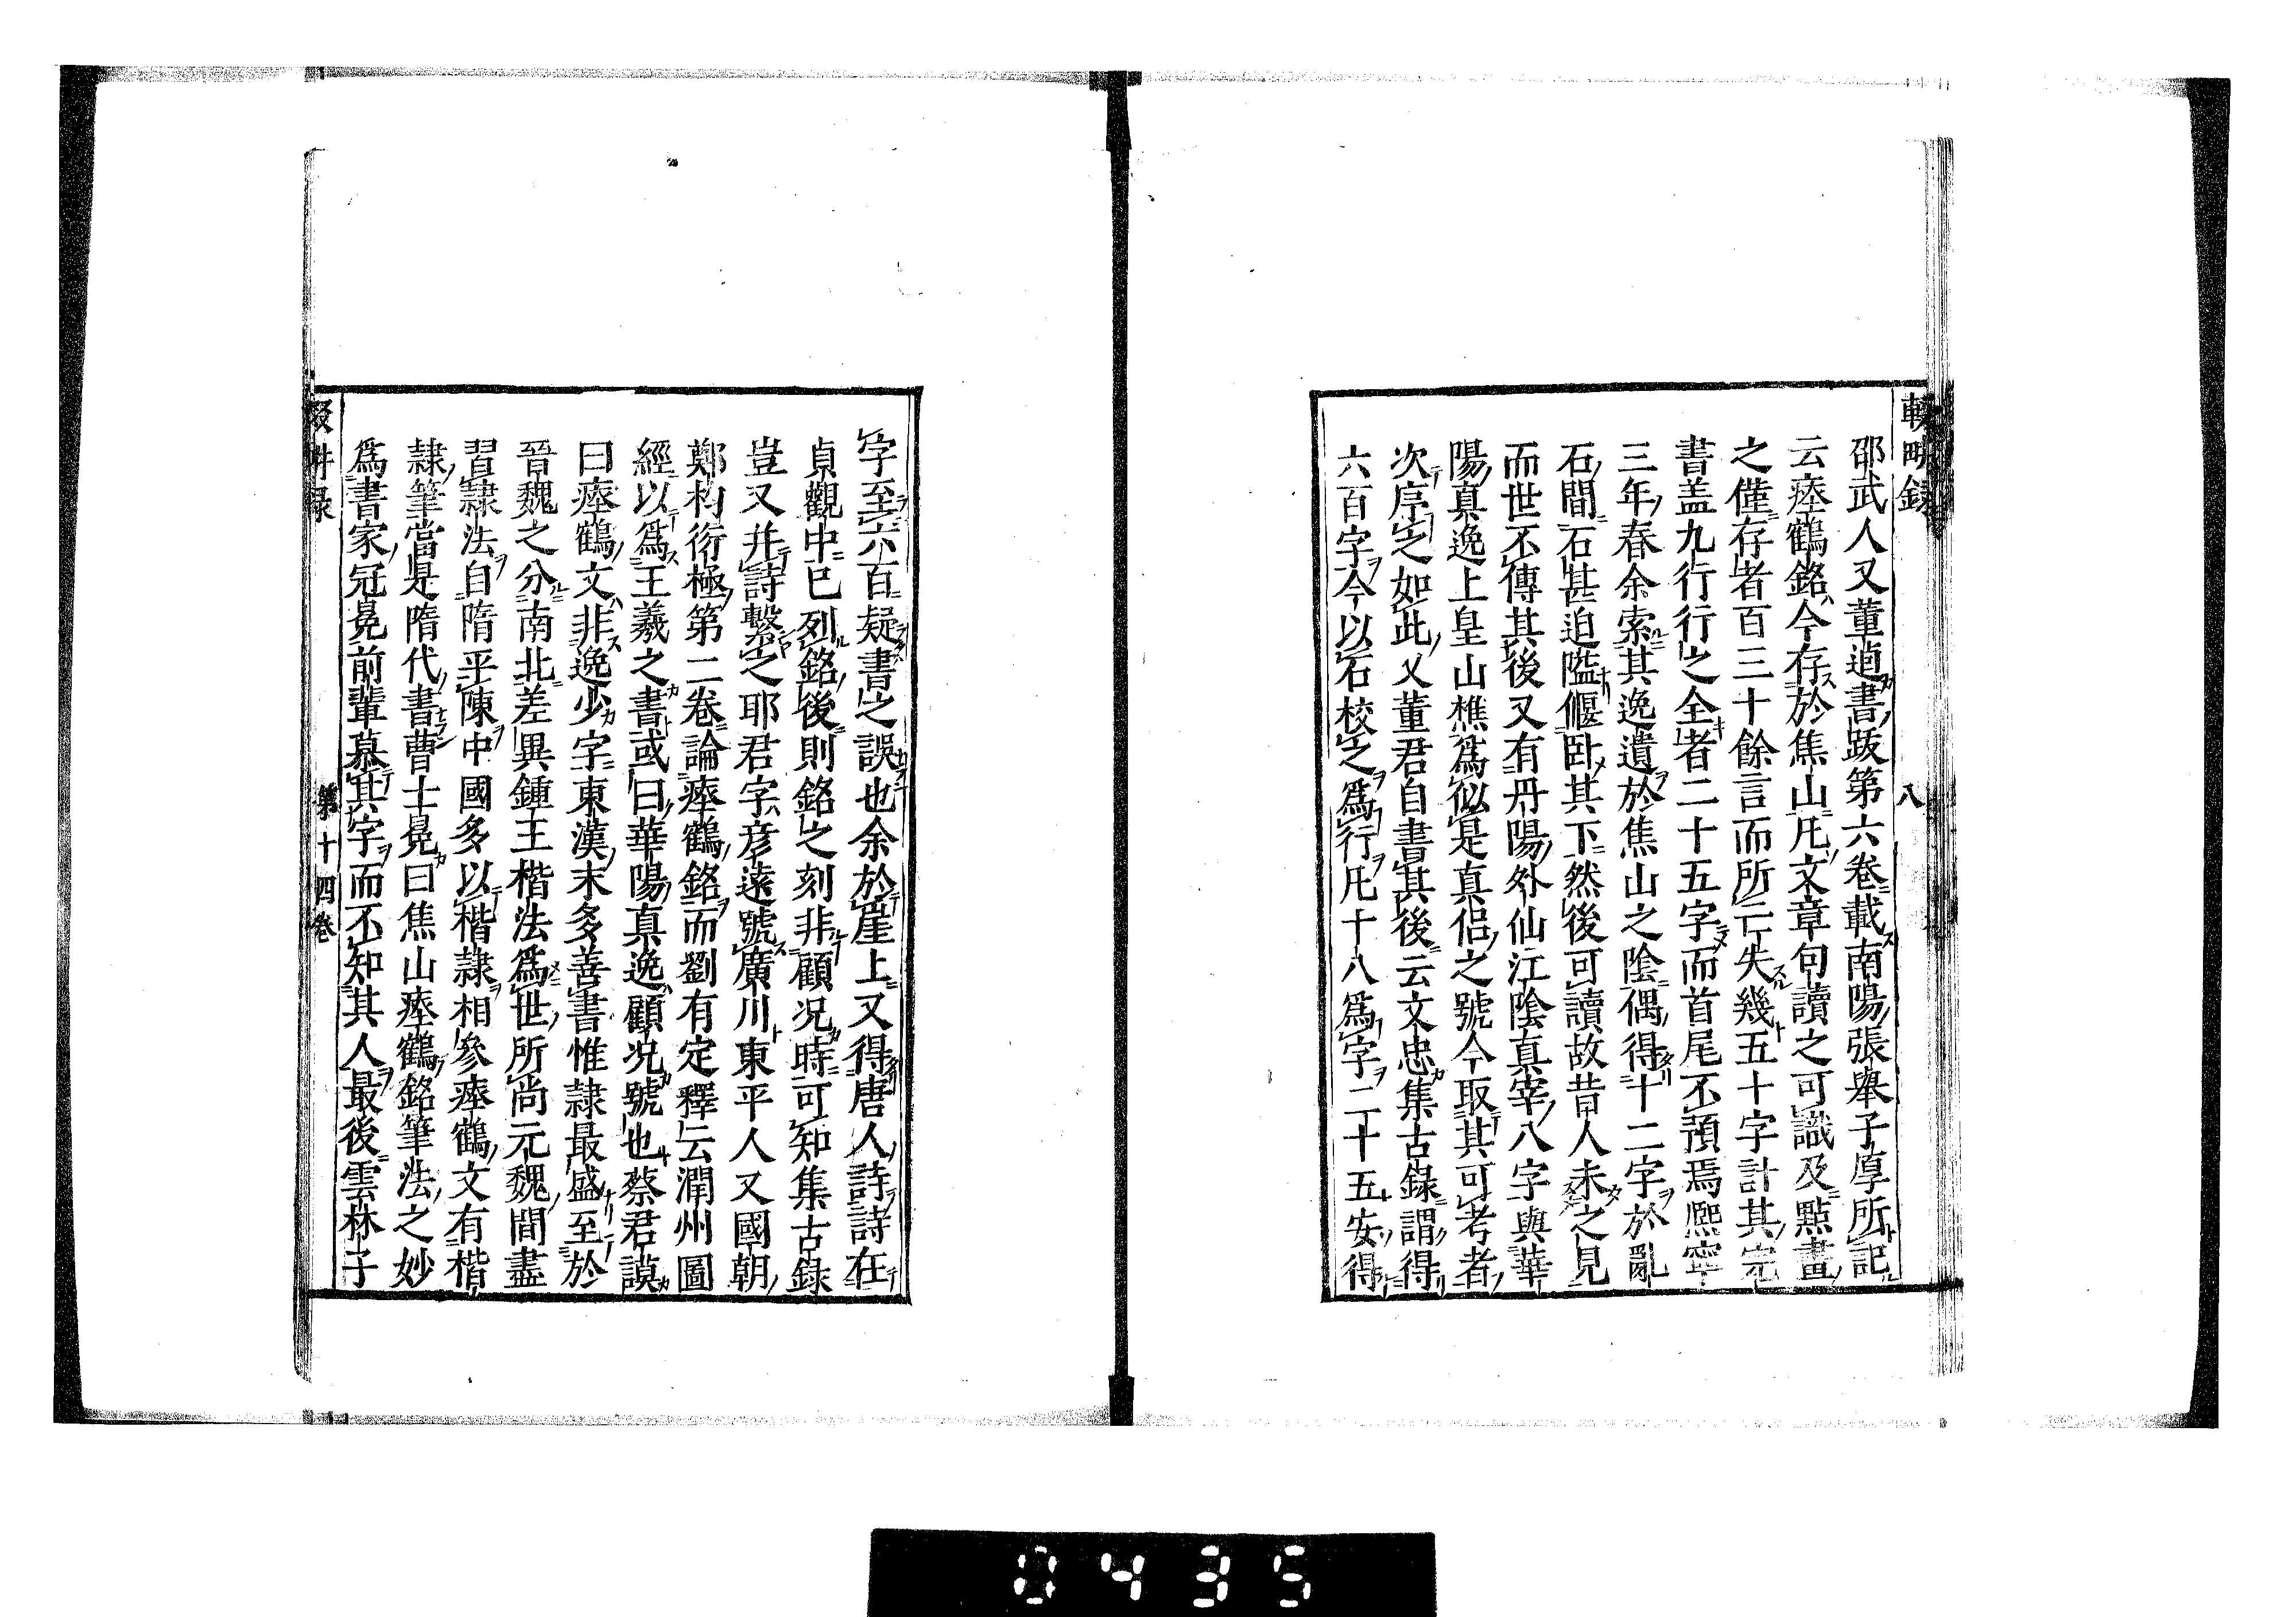 輟畊録
八
邵武人又董逌書跋第六卷載南陽張舉子厚所記
云瘞鶴銘今存於焦山凡文章句讀之可識及點畫
之僅存者百三十餘言而所亡失幾五十字計其完
書盖九行行之全者二十五字而首尾不預焉熈寧
三年春余索其逸遺於焦山之陰偶得十二字於亂
石間石甚迫隘偃卧其下然後可讀故昔人未之見
而世不傳其後又有丹陽外仙江陰真宰八字與華
陽真逸上皇山樵爲似是真侣之號今取其可考者
次序之如此又董君自書其後云文忠集古錄謂得
六百字今以石校之爲行凡十八爲字二十五安得
字至六百疑書之誤也余於崖上又得唐人詩詩在
貞觀中已列銘後則銘之刻非顧况時可知集古錄
豈又并詩繫之耶君字彦遠號廣川東平人又國朝
鄭杓衍極第二卷論瘞鶴銘而劉有定釋云潤州圖
經以爲王羲之書或曰華陽真逸顧况號也蔡君謨
曰瘞鶴文非逸少字東漢末多善書惟隷最盛至於
晉魏之分南北差異鍾王楷法爲世所尚元魏間盡
習隷法自隋平陳中國多以楷隷相參瘞鶴文有楷
隷筆當是隋代書曹士冕曰焦山瘞鶴銘筆法之妙
爲書家冠冕前輩慕其字而不知其人最後雲林子
輟畊录
第十四卷
0435